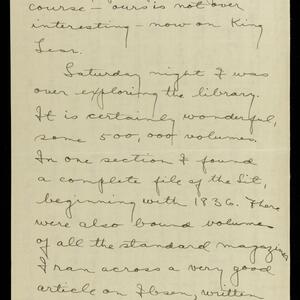 course – ours is not over
interesting – now on King
Lear.
Saturday night I was
over exploring the library.
It is certainly wonderful,
some 500,000 volumes.
In one section I found
a complete file of the Lit,
beginning with 1836. There
were also bound volumes
of all the standard magazines
I ran across a very good
article on Ibsen, written